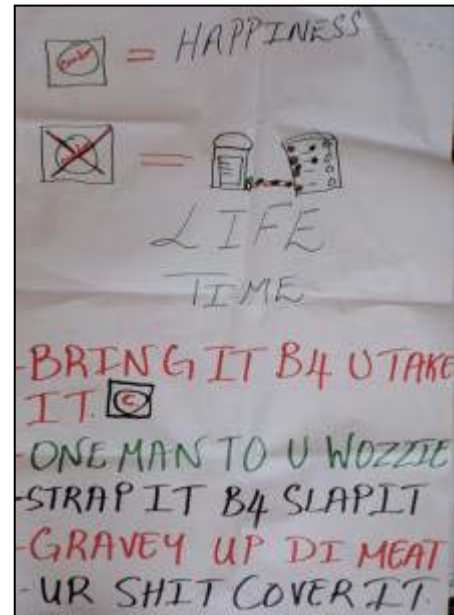 Condom = HAPPINESS
=
LIFE
TIME
- BRING IT B4 U TAKE
IT. C
- ONE MAN TO U WOZZIE
- STRAP IT B4 SLAP IT
- GRAVEY UP DI MEAT
- UR SHIT COVER IT.